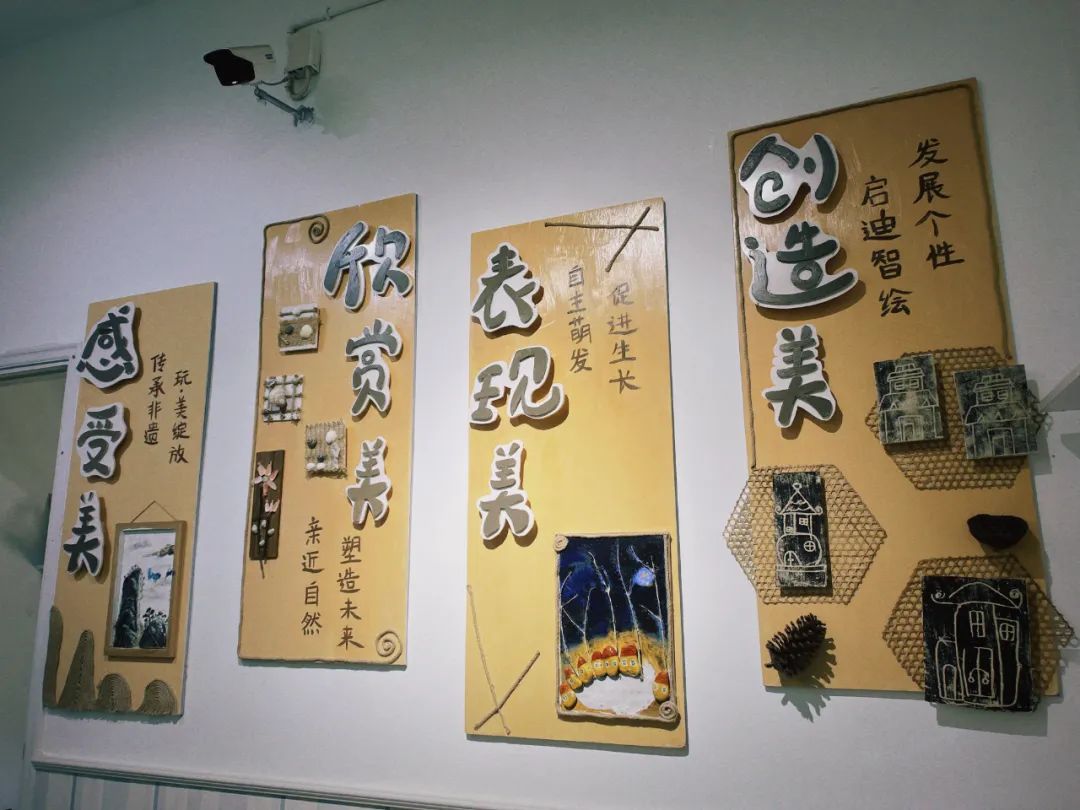 感受美
传承非遗
玩·美绽放
欣赏美
亲近自然
塑造未来
表现美
自主萌发
促进生长
创造美
启迪智绘
发展个性